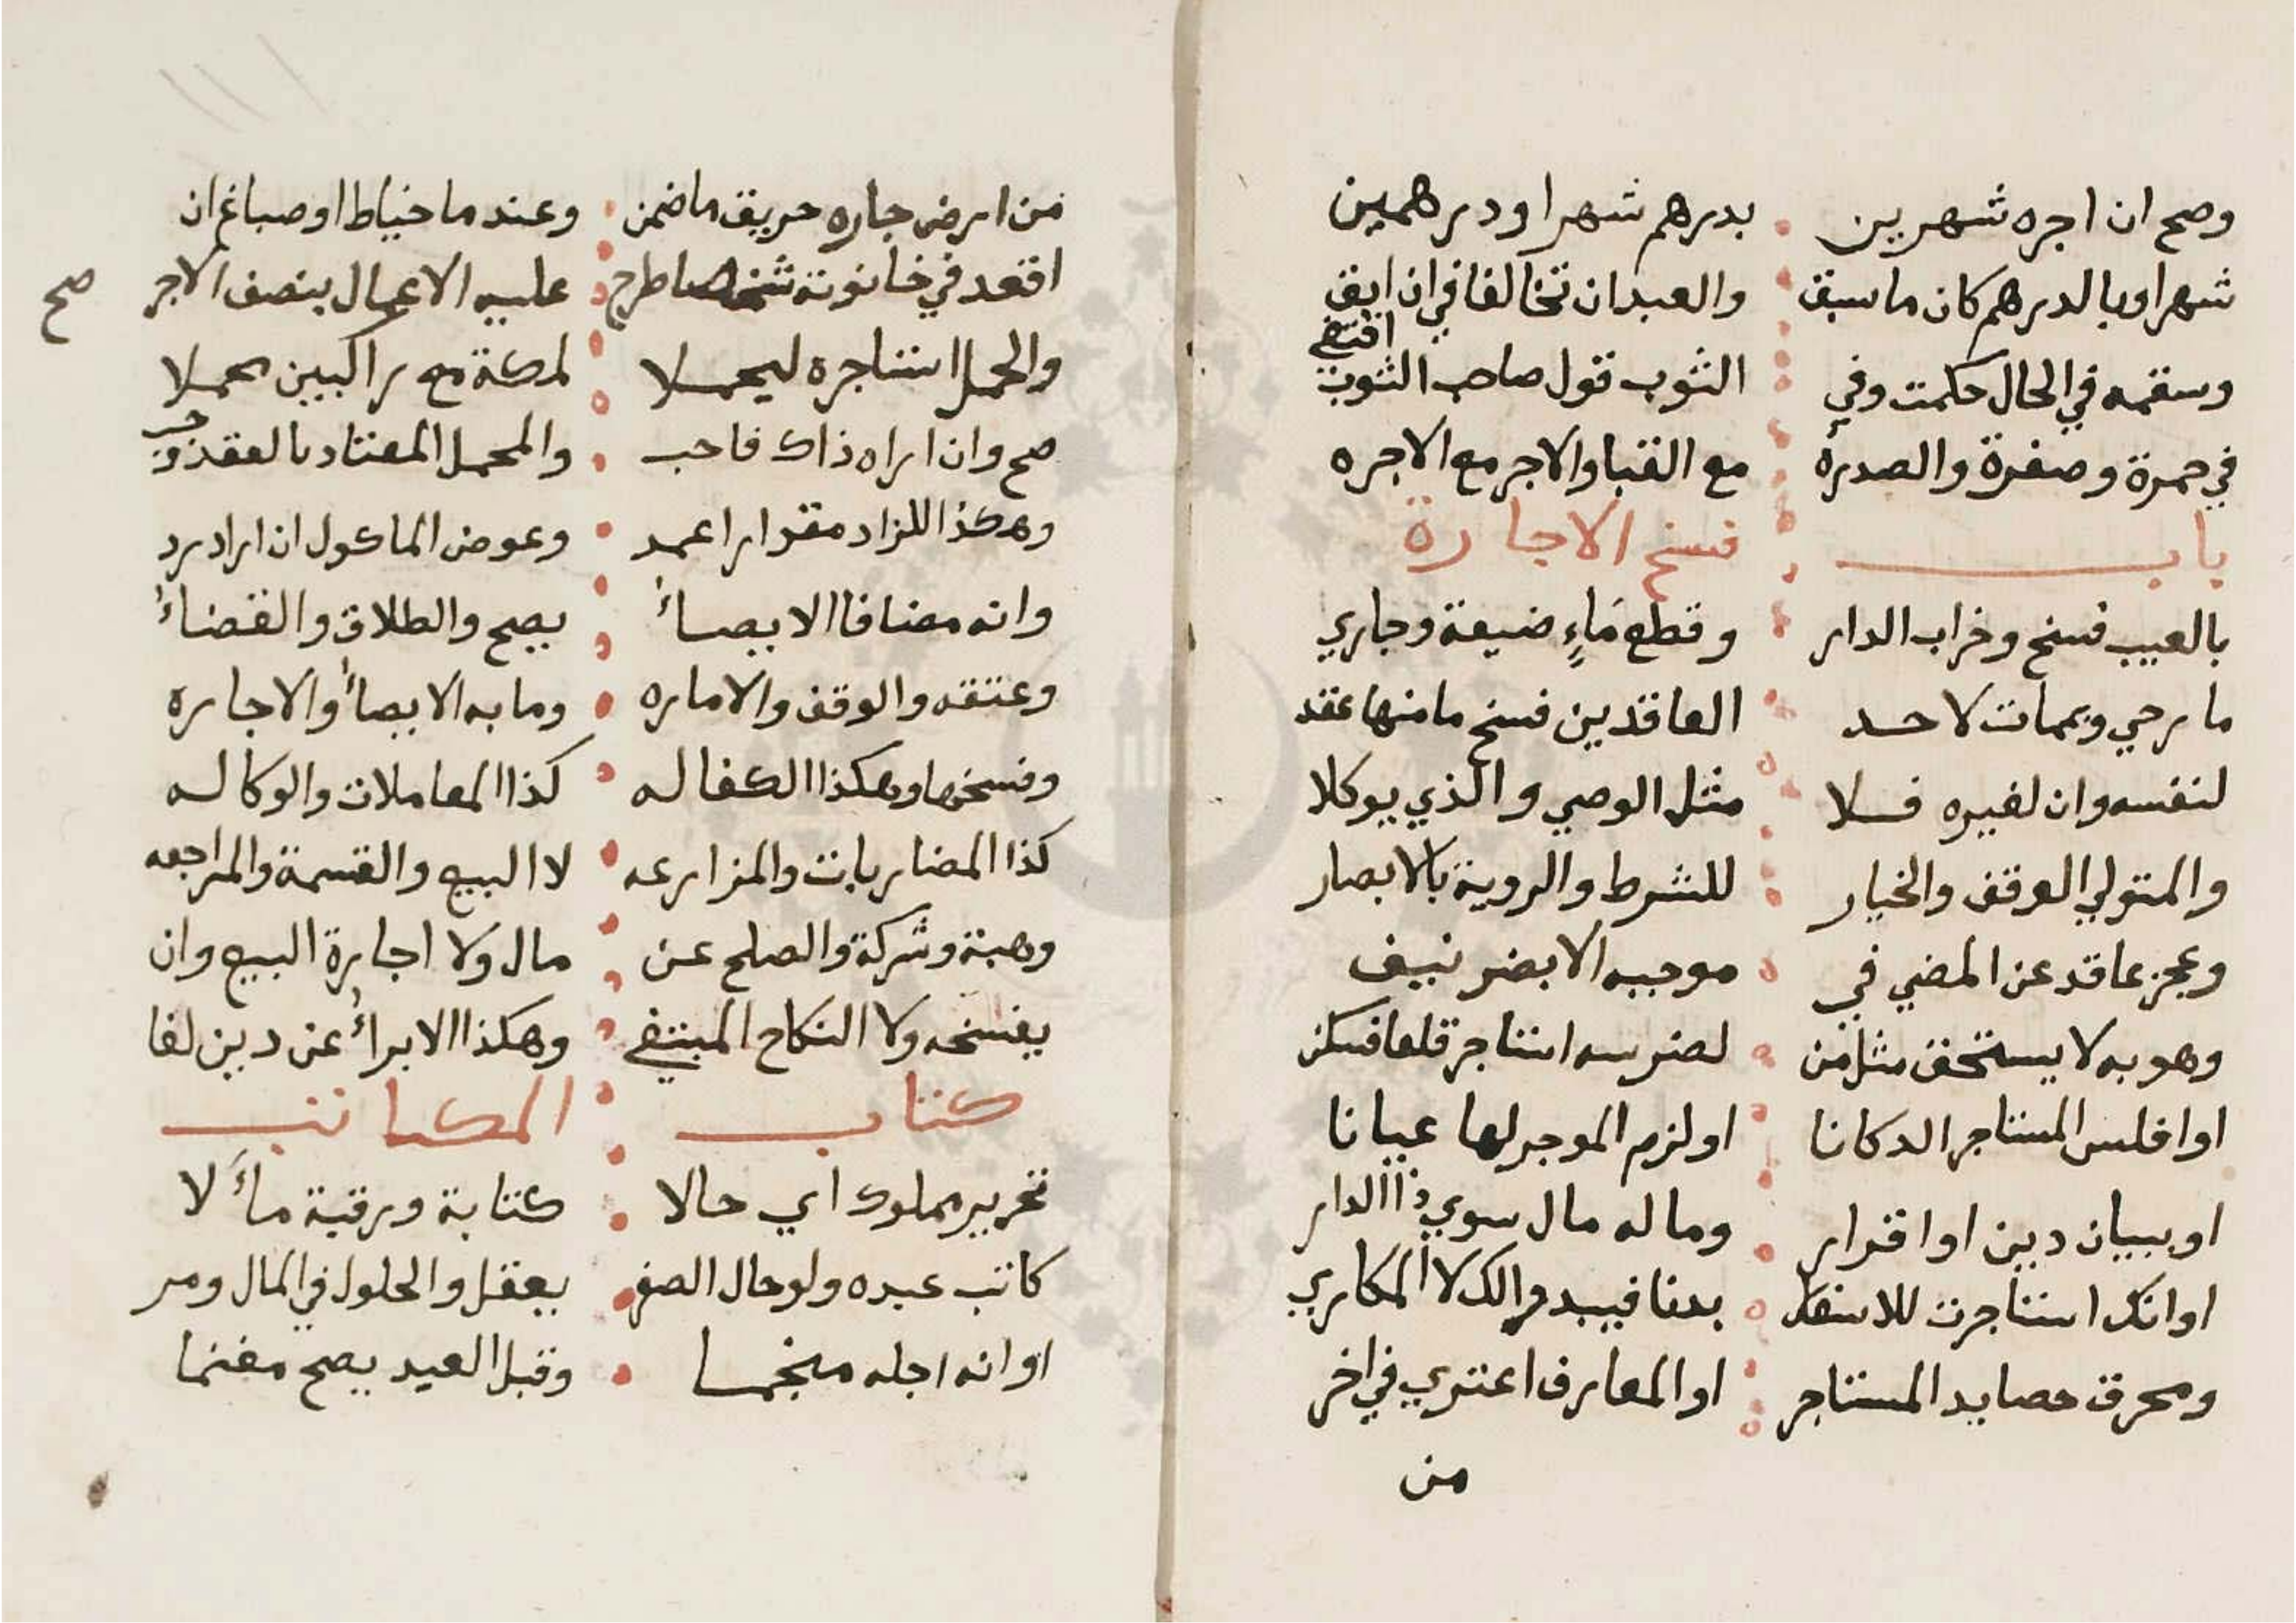 وصح ان اجره شهرين بدرهم شهرا ودرهمين
شهرا وبالدرهم كان ما سبق والعبد ان تخالفا في ان ابق
وسقمه في الحال حكمت وفي الثوب قول صاحب الثوب اقتفي
في حمرة وصفرة والصدره مع القبا والاجر مع الاجره
باب فسخ الاجارة
بالعيب فسخ وخراب الدار وقطع ماء ضيعة وجاري
ما رحي وبممات لاحد العاقدين فسخ ما منها عقد
لنفسه وان لغيره فلا مثل الوصي والذي يوكلا
والمتولي الوقف والخيار للشرط والروية بالابصار
وعجز عاقد عن المضي في موجبه الا بضر نيف
وهو به لا يستحق مثل من لضرسه استاجر قلعا فسكن
او افلس المستاجر الدكانا او لزم الموجر لها عيانا
او ببيان دين او اقرار وما له مال سوي ذا الدار
او انك استاجرت للاسفار بدنا فيبدو لك لا المكاري
ومحرق حصايد المستاجر او المعارف اعتري في اخر
من
من ارض جاره حريق ما ضمن وعند ما خياط او صباغ ان
اقعد في خانوتة شخصا طرح عليه الاعمال بنصف الاجر صح
والحمل استاجره ليحملا لمكة مع راكبين محملا
صح وان اراه ذاك فاحب والمحمل المعتاد بالعقد وجب
وهكذا للزاد مقدارا عمد وعوض الماكول ان اراد رد
وانه مضافا الايصاء يصح والطلاق والقضاء
وعتقه والوقف والاماره وما به الايصاء والاجاره
وفسخها وهكذا الكفاله كذا المعاملات والوكاله
كذا المضاربات والمزارعه لا البيع والقسمة والمراجعه
وهبة وشركة والصلح عن مال ولا اجارة البيع وان
يفسخه ولا النكاح المبتغي وهكذا الابراء عن دين لغا
كتاب المكاتب
تحرير مملوك اي حالا كتابة ورقبة مالا
كاتب عبده ولو حال الصغر يعقل والحلول في المال ومر
او انه اجله منجما وقبل العبد يصح مغنما